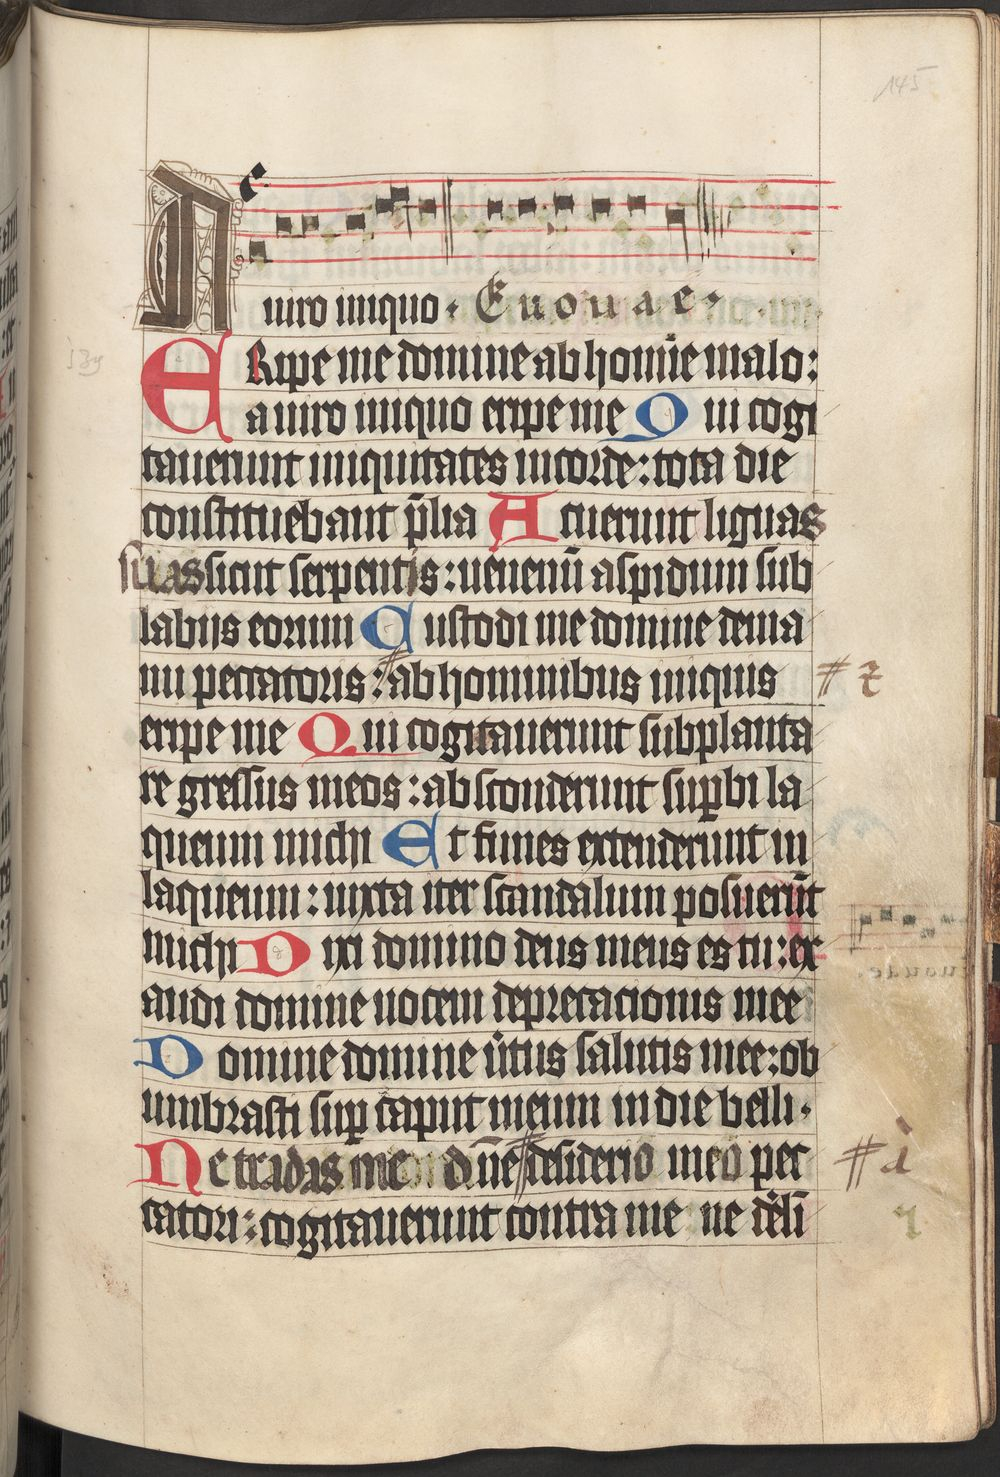 145
A
uiro iniquo · Euouae ·
ERipe me domine ab homīe malo:
a uiro iniquo eripe me Qui cogi
tauerunt iniquitates in corde: tota die
constituebant p̄lia Acuerunt liguas
suas sicut serpentis: uenenū aspidum sub
labijs eorum Custodi me domine de ma
nu peccatoris: # ab hominibus iniquis # z
eripe me Qui cogitauerunt subplanta
re gressus meos: absconderunt suꝑbi la
queum michi Et funes extenderunt in
laqueum: iuxta iter scandalum posuerūt
michi Dixi domino deus meus es tu: ex
audi domine uocem deprecationis mee
Domine domine ūtus salutis mee: ob
umbrasti suꝑ caput meum in die belli ·
Ne tradas me dn̄e # desiderio meo pec # à
catori: cogitauerunt contra me ne dēli